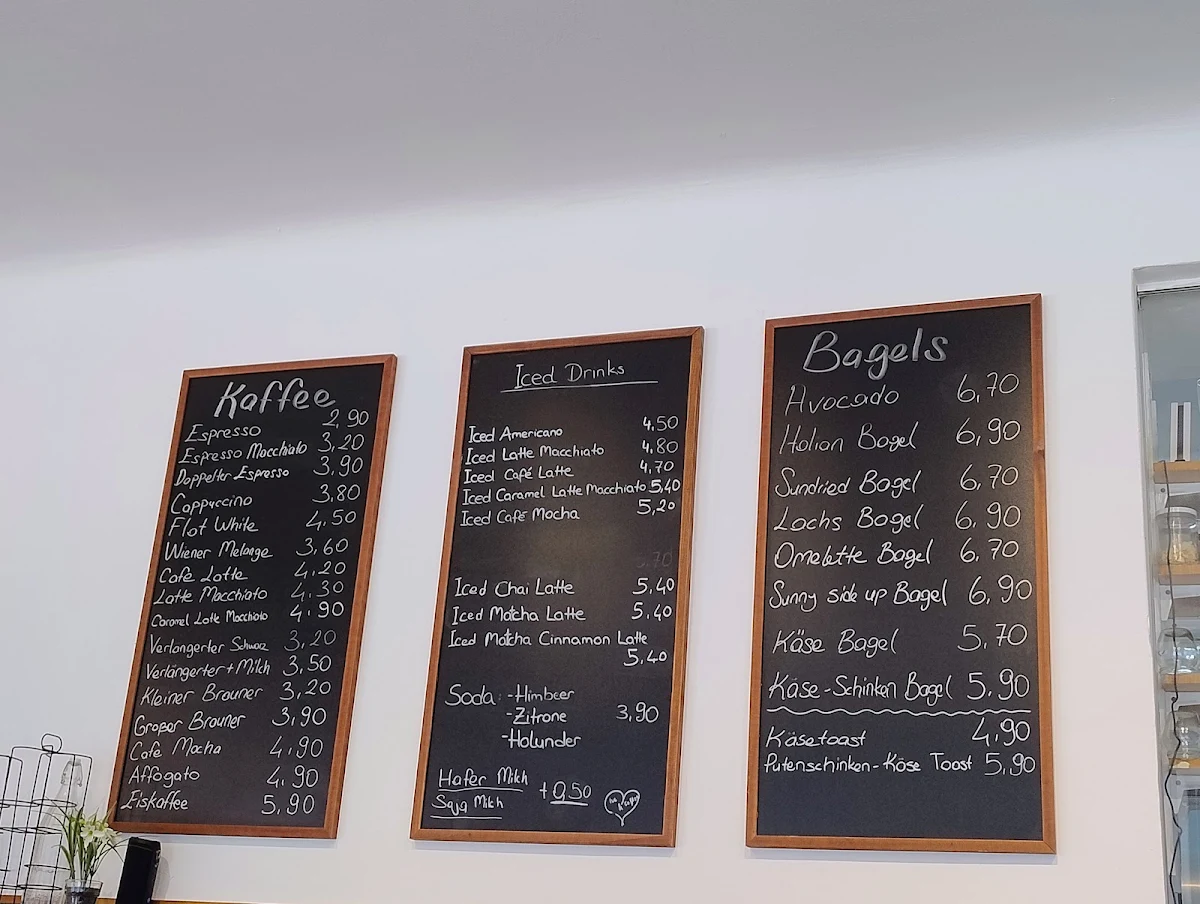 Kaffee
Espresso 2,90
Espresso Macchiato 3,20
Doppelter Espresso 3,90
Cappuccino 3,80
Flat White 4,50
Wiener Melange 3,60
Cafe Latte 4,20
Latte Macchiato 4,30
Caramel Latte Macchiato 4,90
Verlängerter Schwarz 3,20
Verlängerter + Milch 3,50
Kleiner Brauner 3,20
Großer Brauner 3,90
Cafe Mocha 4,90
Affogato 4,90
Eiskaffee 5,90
Iced Drinks
Iced Americano 4,50
Iced Latte Macchiato 4,80
Iced Café Latte 4,70
Iced Caramel Latte Macchiato 5,40
Iced Café Mocha 5,20
5,70
Iced Chai Latte 5,40
Iced Matcha Latte 5,40
Iced Matcha Cinnamon Latte
5,40
Soda: -Himbeer
-Zitrone 3,90
-Holunder
Hafer Milch +0,50
Soja Milch
Bagels
Avocado 6,70
Italian Bagel 6,90
Sundried Bagel 6,70
Lachs Bagel 6,90
Omelette Bagel 6,70
Sunny side up Bagel 6,90
Käse Bagel 5,70
Käse-Schinken Bagel 5,90
Käsetoast 4,90
Putenschinken-Käse Toast 5,90